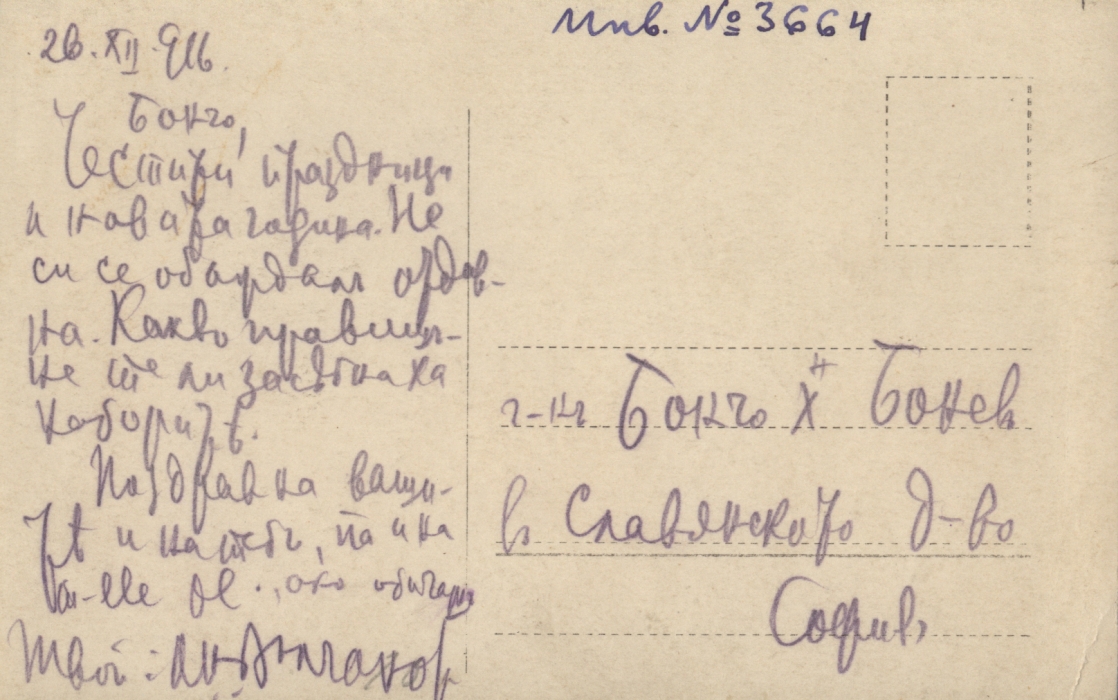 Инв. № 3664
26.XII.916.
Бончо,
Честити праздници
и новата година. Не
си се обаждал отдав-
на. Какво правиш-
не те ли засѣгнаха
наборитѣ.
Поздрав на ваши-
тѣ и на тебъ, па и на
ако обичаш
Твой:
г-нъ Бончо Хн Бонев
в Славянското д-во
София